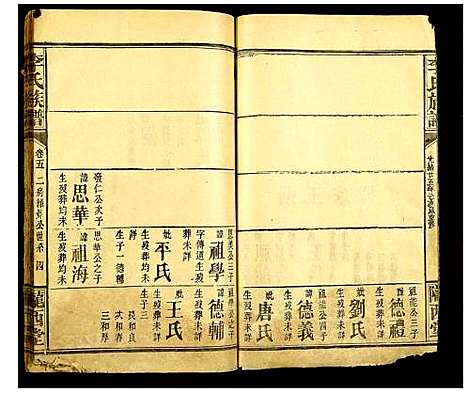 李氏族譜
隴西堂
道能公三子
諱德禮
生歿葬未詳
妣劉氏
生歿葬未詳
道能公四子
諱德義
生歿葬未詳
妣唐氏
生歿葬未詳
李氏族譜
卷五
四
隴西堂
公次子
諱思華
生歿葬均未
思華公之子
諱祖海
生歿葬均未
三子
諱祖學
字傳道生歿
葬未詳
妣平氏
生歿葬未詳
生子一德輔
祖學公之子
諱德輔
生歿葬未詳
妣王氏
生歿葬未詳
生子三
長和良
次和春
三和厚